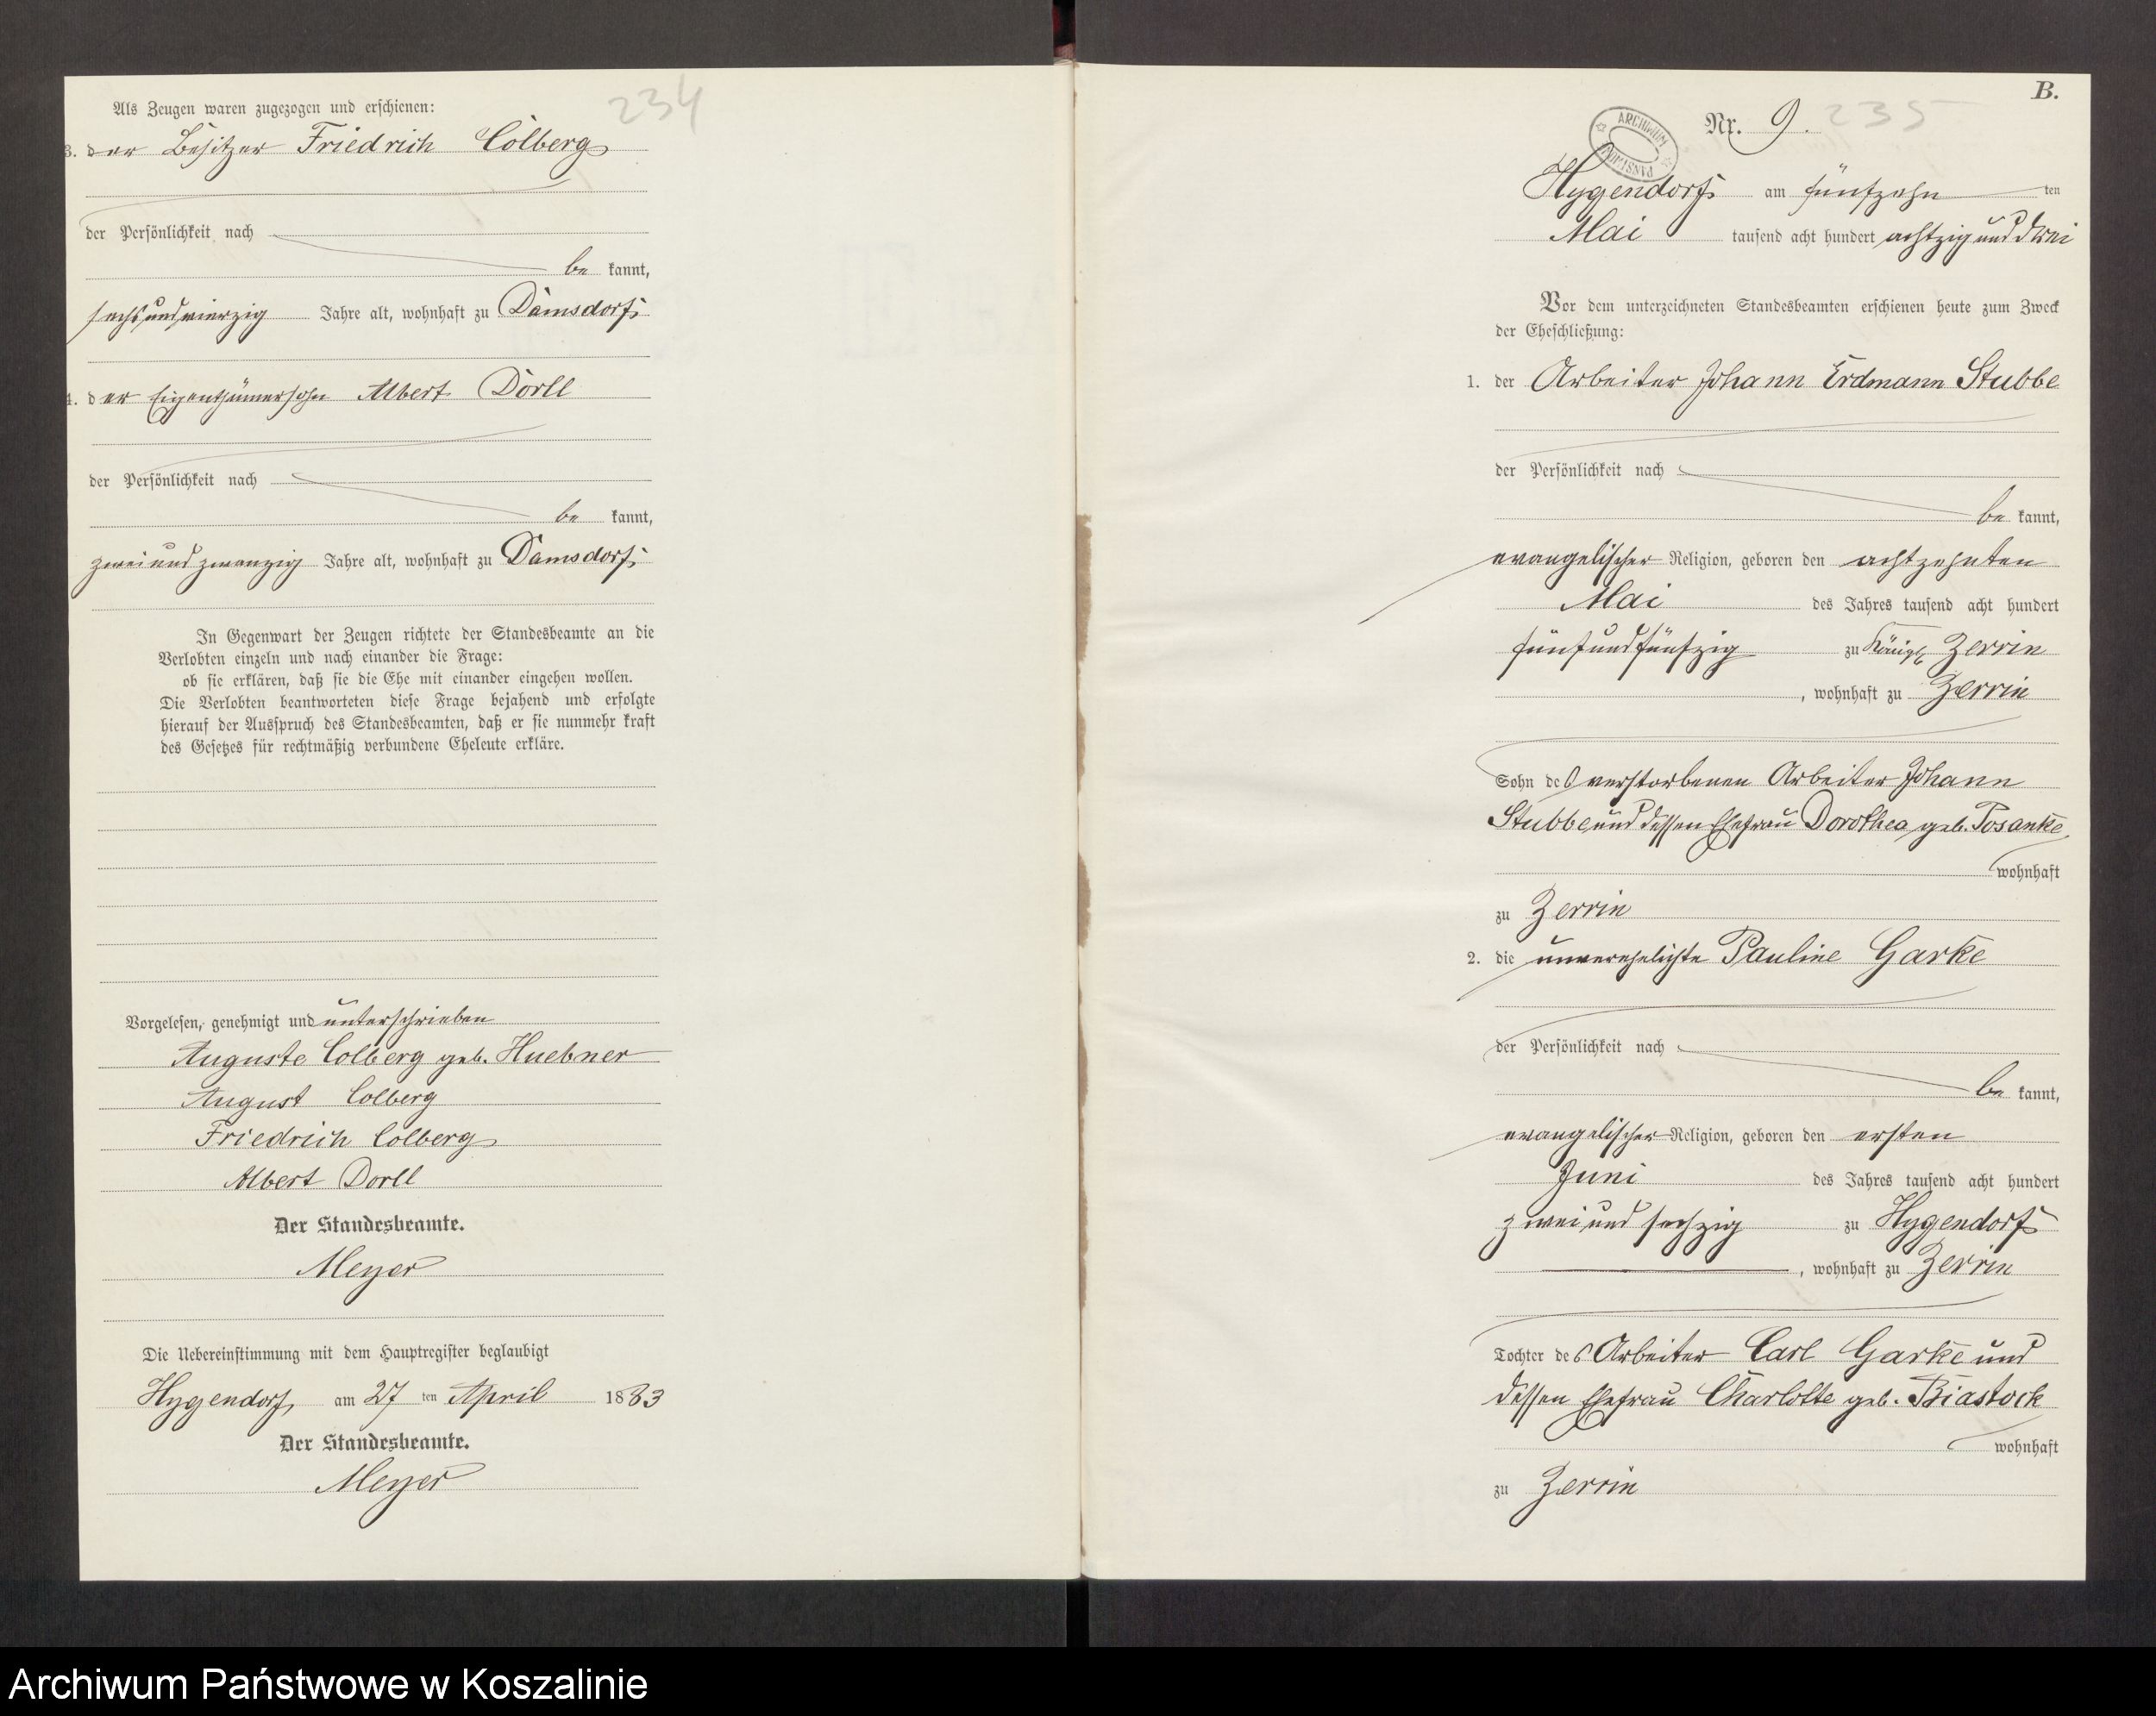 234
Als Zeugen waren zugezogen und erschienen:
3. der Besitzer Friedrich Colberg
der Persönlichkeit nach
be kannt,
sechsundvierzig Jahre alt, wohnhaft zu Damsdorf
4. der Eigenthümersohn Albert Dorll
der Persönlichkeit nach
be kannt,
zwei und zwanzig Jahre alt, wohnhaft zu Damsdorf
In Gegenwart der Zeugen richtete der Standesbeamte an die
Verlobten einzeln und nach einander die Frage:
ob sie erklären, daß sie die Ehe mit einander eingehen wollen.
Die Verlobten beantworteten diese Frage bejahend und erfolgte
hierauf der Ausspruch des Standesbeamten, daß er sie nunmehr kraft
des Gesetzes für rechtmäßig verbundene Eheleute erkläre.
Vorgelesen, genehmigt und unterschrieben
Auguste Colberg geb. Huebner
August Colberg
Friedrich Colberg
Albert Dorll
Der Standesbeamte.
Meyer
Die Uebereinstimmung mit dem Hauptregister beglaubigt
Hygendorf, am 27 ten April 1883
Der Standesbeamte.
Meyer
B.
Nr. 9. 235
ARCHIWUM PAŃSTWOWE
Hygendorf am fünfzehn ten
Mai tausend acht hundert achtzig und drei
Vor dem unterzeichneten Standesbeamten erschienen heute zum Zweck
der Eheschließung:
1. der Arbeiter Johann Erdmann Stubbe
der Persönlichkeit nach
be kannt,
evangelischer Religion, geboren den achtzehnten
Mai des Jahres tausend acht hundert
fünf und fünfzig zu Königl. Zerrin
, wohnhaft zu Zerrin
Sohn des verstorbenen Arbeiter Johann
Stubbe und dessen Ehefrau Dorothea geb. Posanke,
wohnhaft
zu Zerrin
2. die unverehelichte Pauline Garke
der Persönlichkeit nach
be kannt,
evangelischer Religion, geboren den ersten
Juni des Jahres tausend acht hundert
zwei und sechzig zu Hygendorf
, wohnhaft zu Zerrin
Tochter des Arbeiter Carl Garke und
dessen Ehefrau Charlotte geb. Biastock
wohnhaft
zu Zerrin
Archiwum Państwowe w Koszalinie